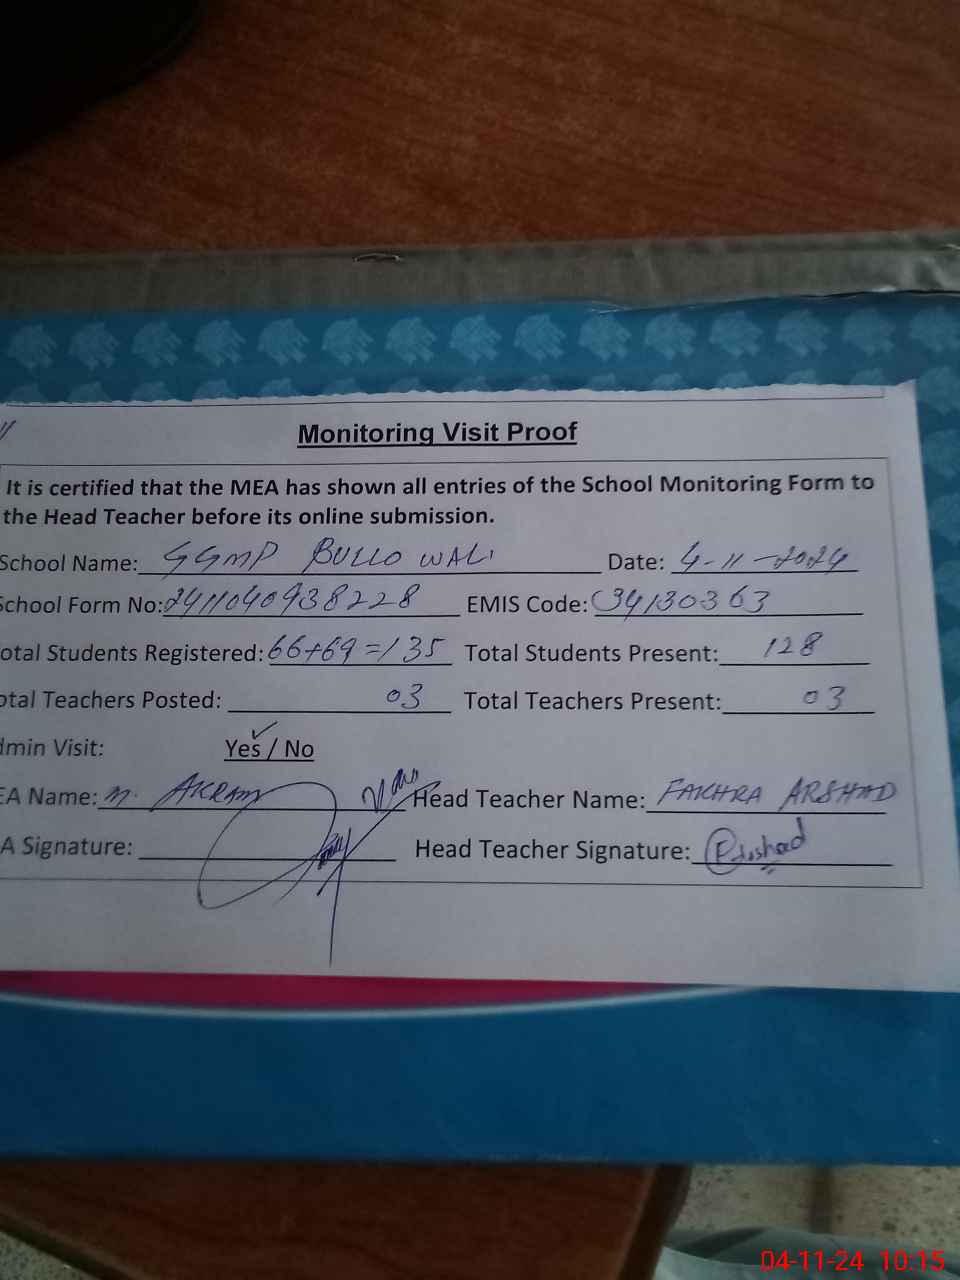 Monitoring Visit Proof
It is certified that the MEA has shown all entries of the School Monitoring Form to
the Head Teacher before its online submission.
School Name: GGMP BULLO WALI Date: 4-11-2024
School Form No: 2411040938228 EMIS Code: 34130363
otal Students Registered: 66+69=135 Total Students Present: 128
otal Teachers Posted: 03 Total Teachers Present: 03
dmin Visit: Yes / No
EA Name: M. AKRAM Head Teacher Name: FAKHRA ARSHAD
A Signature: Head Teacher Signature:
04-11-24 10:15